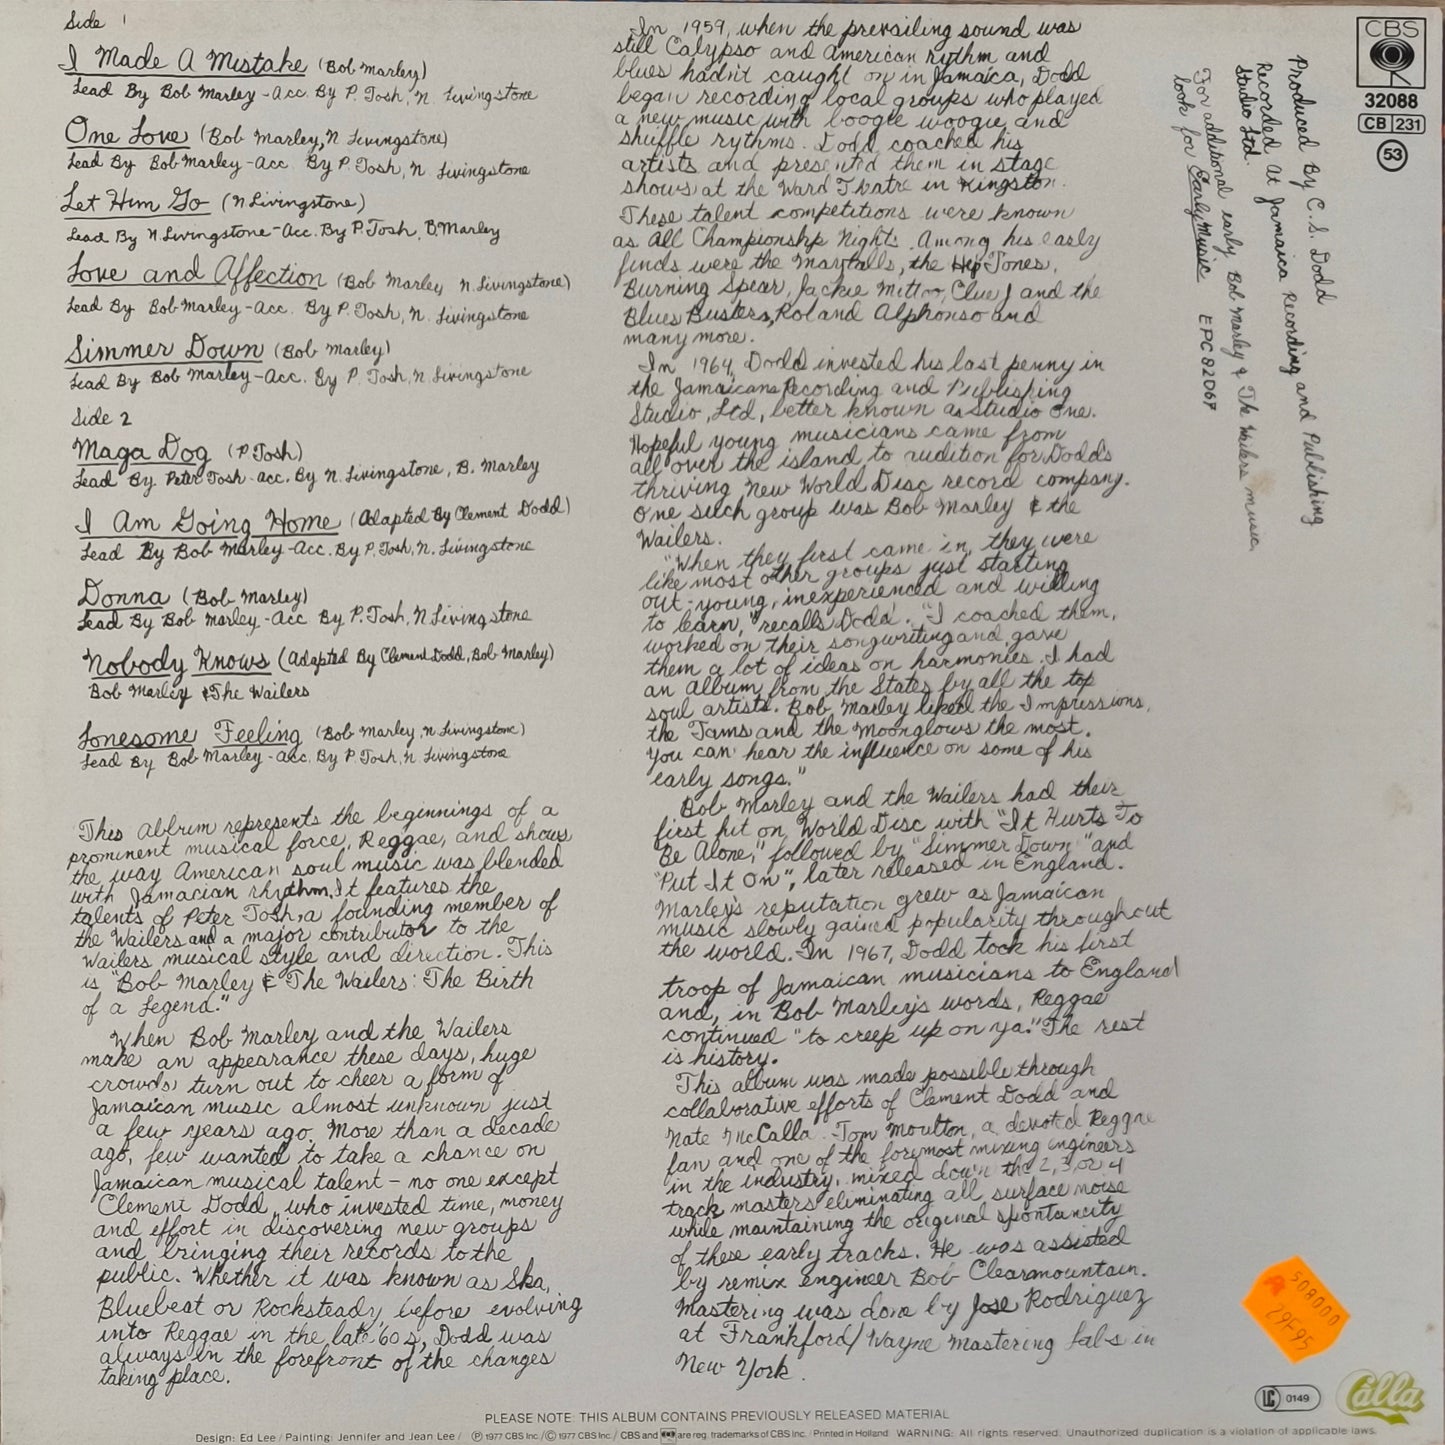 Side 1
I Made A Mistake (Bob Marley)
Lead By Bob Marley - Acc. By P. Tosh, N. Livingstone
One Love (Bob Marley, N Livingstone)
Lead By Bob Marley - Acc. By P. Tosh, N Livingstone
Let Him Go (N Livingstone)
Lead By N Livingstone - Acc. By P. Tosh, B. Marley
Love and Affection (Bob Marley N. Livingstone)
Lead By Bob Marley - Acc. By P. Tosh, N. Livingstone
Simmer Down (Bob Marley)
Lead By Bob Marley - Acc. By P. Tosh, N Livingstone
Side 2
Maga Dog (P Tosh)
Lead By Peter Tosh - acc. By N. Livingstone, B. Marley
I Am Going Home (Adapted By Clement Dodd)
Lead By Bob Marley - Acc. By P. Tosh, N. Livingstone
Donna (Bob Marley)
Lead By Bob Marley - Acc By P. Tosh, N Livingstone
Nobody Knows (Adapted By Clement Dodd, Bob Marley)
Bob Marley & The Wailers
Lonesome Feeling (Bob Marley, N Livingstone)
Lead By Bob Marley - acc. By P. Tosh, N Livingstone
This album represents the beginnings of a
prominent musical force, Reggae, and shows
the way American soul music was blended
with Jamacian rhythm. It features the
talents of Peter Tosh, a founding member of
the Wailers and a major contributor to the
Wailers musical style and direction. This
is "Bob Marley & The Wailers: The Birth
of a Legend."
When Bob Marley and the Wailers
make an appearance these days, huge
crowds turn out to cheer a form of
Jamaican music almost unknown just
a few years ago. More than a decade
ago, few wanted to take a chance on
Jamaican musical talent - no one except
Clement Dodd, who invested time, money
and effort in discovering new groups
and bringing their records to the
public. Whether it was known as Ska,
Bluebeat or Rocksteady before evolving
into Reggae in the late '60s, Dodd was
always in the forefront of the changes
taking place.
In 1959, when the prevailing sound was
still Calypso and American rythm and
blues hadn't caught on in Jamaica, Dodd
began recording local groups who played
a new music with boogie woogie and
shuffle rythms. Dodd coached his
artists and presented them in stage
shows at the Ward Theatre in Kingston.
These talent competitions were known
as All Championship Nights. Among his early
finds were the Maytalls, the Hep Tones,
Burning Spear, Jackie Mittoo, Clue J and the
Blues Busters, Roland Alphonso and
many more.
In 1964, Dodd invested his last penny in
the Jamaicans Recording and Publishing
Studio, Ltd., better known as Studio One.
Hopeful young musicians came from
all over the island to audition for Dodds
thriving New World Disc record company.
One such group was Bob Marley & the
Wailers.
"When they first came in, they were
like most other groups just starting
out - young, inexperienced and willing
to learn," recalls Dodd. "I coached them,
worked on their songwriting and gave
them a lot of ideas on harmonies. I had
an album from the States by all the top
soul artists. Bob Marley liked the Impressions,
the Tams and the Moonglows the most.
You can hear the influence on some of his
early songs."
Bob Marley and the Wailers had their
first hit on World Disc with "It Hurts To
Be Alone," followed by "Simmer Down" and
"Put It On", later released in England.
Marley's reputation grew as Jamaican
music slowly gained popularity throughout
the world. In 1967, Dodd took his first
troop of Jamaican musicians to England
and, in Bob Marley's words, Reggae
continued "to creep up on ya." The rest
is history.
This album was made possible through
collaborative efforts of Clement Dodd and
Nate McCalla. Tom Moulton, a devoted Reggae
fan and one of the foremost mixing engineers
in the industry, mixed down the 2, 3 or 4
track masters eliminating all surface noise
while maintaining the original spontaneity
of these early tracks. He was assisted
by remix engineer Bob Clearmountain.
Mastering was done by Jose Rodriguez
at Frankford/Wayne Mastering Labs in
New York.
Produced By C.S. Dodd
Recorded At Jamaica Recording and Publishing
Studio Ltd.
For additional early Bob Marley & The Wailers music,
look for Early Music EPC 82067
CBS
32088
CB 231
53
508000
29F95
LC 0149
Calla
PLEASE NOTE: THIS ALBUM CONTAINS PREVIOUSLY RELEASED MATERIAL
Design: Ed Lee / Painting: Jennifer and Jean Lee / Ⓟ 1977 CBS Inc. / © 1977 CBS Inc. / CBS and are reg. trademarks of CBS Inc. / Printed in Holland WARNING: All rights reserved. Unauthorized duplication is a violation of applicable laws.